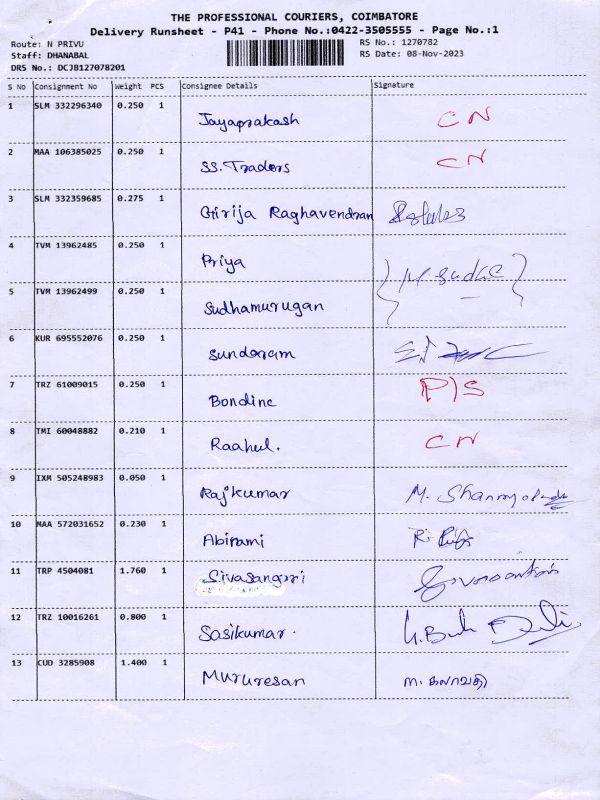 THE PROFESSIONAL COURIERS, COIMBATORE
Delivery Runsheet - P41 - Phone No.:0422-3505555 - Page No.:1
Route: N PRIVU RS No.: 1270782
Staff: DHANABAL RS Date: 08-Nov-2023
DRS No.: DCJB127078201
S No Consignment No Weight PCS Consignee Details Signature
1 SLM 332296340 0.250 1 Jayaprakash CN
2 MAA 106385025 0.250 1 SS. Traders CN
3 SLM 332359685 0.275 1 Girija Raghavendran
4 TVM 13962485 0.250 1 Priya
5 TVM 13962499 0.250 1 Sudhamurugan
6 KUR 695552076 0.250 1 Sundaram
7 TRZ 61009015 0.250 1 Bondine P)S
8 TMI 60048882 0.210 1 Raahul. CN
9 IXM 505248983 0.050 1 Rajkumar M.
10 MAA 572031652 0.230 1 Abirami R.
11 TRP 4504081 1.760 1
12 TRZ 10016261 0.800 1 Sasikumar.
13 CUD 3285908 1.400 1 Mururesan M.